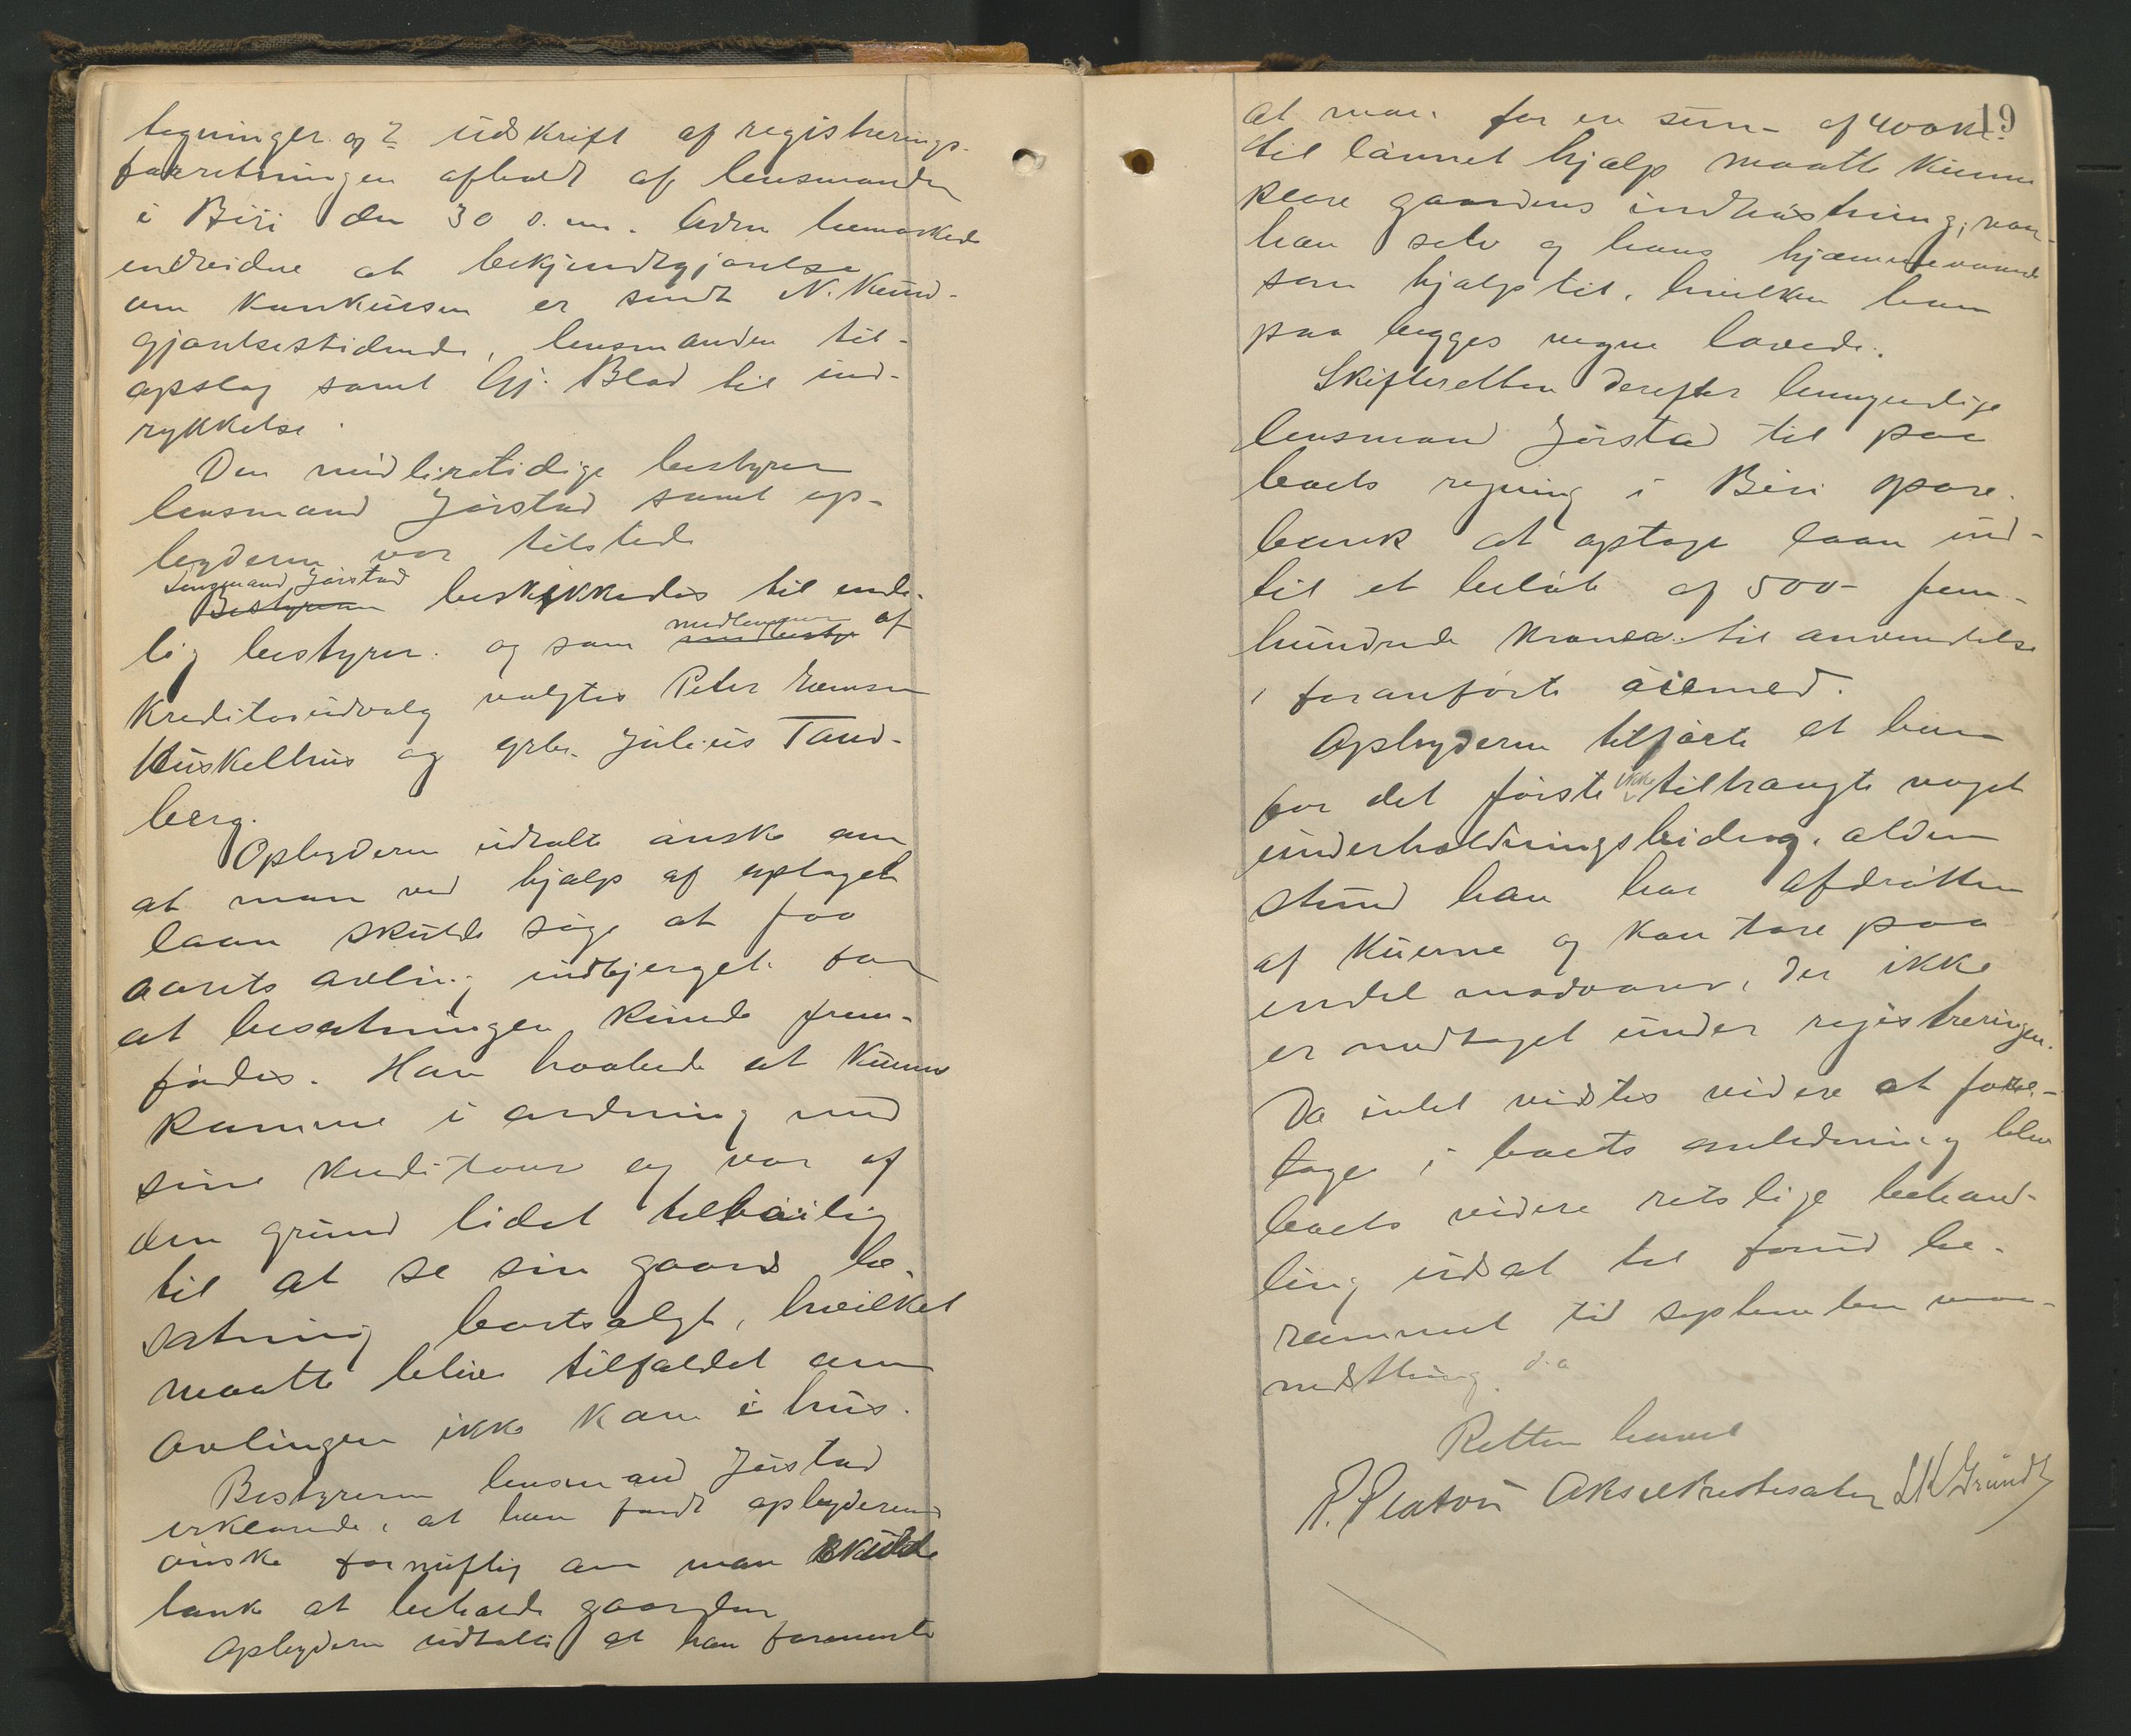 tegninger og 2 udskrift af registrerings-
forretningen afholdt af lensmanden
i Biri den 30 d. m. Adm bemærkede
endvidere at bekjendtgjørelse
om konkursen er sendt N. Kund-
gjørelsestidende, lensmanden til
opslag samt Gj. Blad til ind-
rykkelse.
Den midlertidige bestyrer
lensmand Jørstad samt op-
byderen var tilstede
Lensmand Jørstad
Bestyreren beskikkedes til ende-
lig bestyrer og som medlemmer af
kreditorudvalg valgtes Peter Jemsen
Huskelhus og grbr. Julius Tand-
berg.
Opbyderen udtalte ønske om
at man ved hjælp af optaget
laan skulde søge at faa
aarets avling indbjerget for
at besætningen kunde frem-
fødes. Han haabede at kunne
komme i ordning med
sine kreditorer og var af
den grund lidet tilbøilig
til at se sin gaards be-
sætning bortsolgt, hvilket
maatte blive tilfældet om
avlingen ikke kom i hus.
Bestyreren lensmand Jørstad
erklærede, at han fandt opbyderens
ønske fornuftig om man skulde
tænke at beholde gaarden
Opbyderen udtalte at han formente
19
at man for en sum af 400 kr.
til lønnet hjælp maatte kunne
klare gaardens indhøstning, naar
han selv og hans hjemmeværende
søn hjalp til, hvilken han
paa begges vegne lovede.
Skifteretten derefter bemyndige
lensmand Jørstad til paa
boets regning i Biri spare-
bank at optage laan ind-
til et beløb af 500 - fem-
hundrede kroner til anvendelse
i foranførte øiemed.
Opbyderen tilførte at han
for det første ikke tiltrængte noget
underholdningsbidrag, alden
stund han har afdråtten
af kuerne og kan tære paa
endel madvarer, der ikke
er medtaget under registreringen.
Da intet vidstes videre at fore-
tage i boets anledning blev
boets videre retslige behand-
ling udsat til forud be-
rammet tid september maa-
nedsthing. d.a
Retten hævet
P. Platou Aksel Kristesater LK Grundt